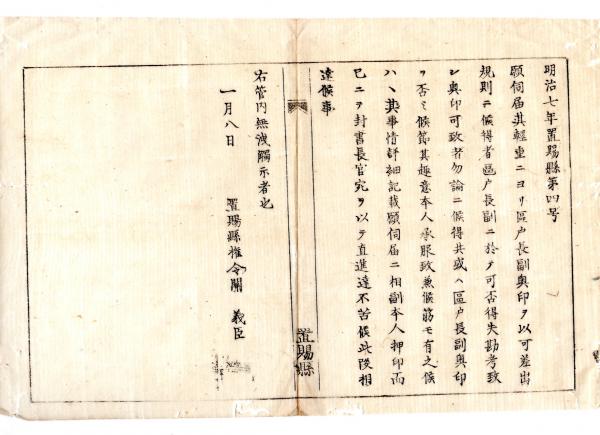 明治七年置賜縣第四号
願伺届其軽重ニヨリ區戸長副奥印ヲ以可差出
規則ニ候得者區戸長副ニ於テ可否得失勘考致
シ奥印可致者勿論ニ候得共或ハ區戸長副奥印
ヲ否ミ候節其趣意本人承服致兼候筋モ有之候
ハヽ其事情詳細記載願伺届ニ相副本人押印而
已ニヲ封書長官宛ヲ以テ直進達不苦候此段相
達候事
右管内無洩觸示者也
一月八日
置賜縣権令関 義臣
置賜縣